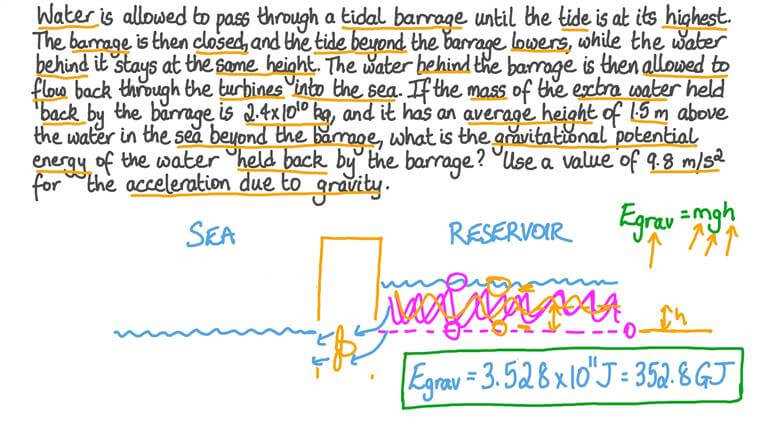 Water is allowed to pass through a tidal barrage until the tide is at its highest.
The barrage is then closed, and the tide beyond the barrage lowers, while the water
behind it stays at the same height. The water behind the barrage is then allowed to
flow back through the turbines into the sea. If the mass of the extra water held
back by the barrage is 2.4x10¹⁰ kg, and it has an average height of 1.5 m above
the water in the sea beyond the barrage, what is the gravitational potential
energy of the water held back by the barrage? Use a value of 9.8 m/s²
for the acceleration due to gravity.
Egrav = mgh
SEA
RESERVOIR
h
Egrav = 3.528 x 10¹¹ J = 352.8 GJ